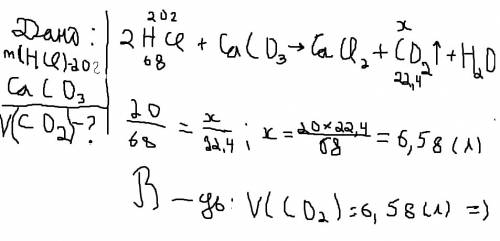 Дано:
m(HCl)=20г
CaCO3
V(CO2)-?
20г x
2HCl + CaCO3 → CaCl2 + CO2↑ + H2O
68 22,4
20/68 = x/22,4 ; x = 20×22,4/68 = 6,58 (л)
В-дь: V(CO2)=6,58(л) =)